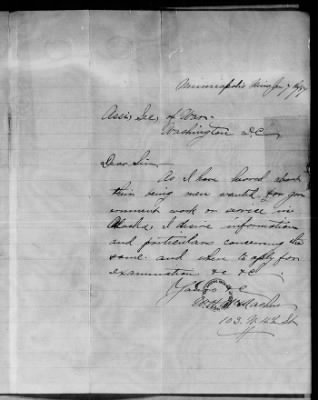 Minneapolis Minn Jan 7
Assis, Sec, of War.
Washington D.C.
Dear Sir,
As I have heard about
thier being men wanted for gov
ernment work or service in
Alaska, I desire information
and particulars concerning the
same and when to aply for
examination &c &c
Yours &c
103. N. 4th St